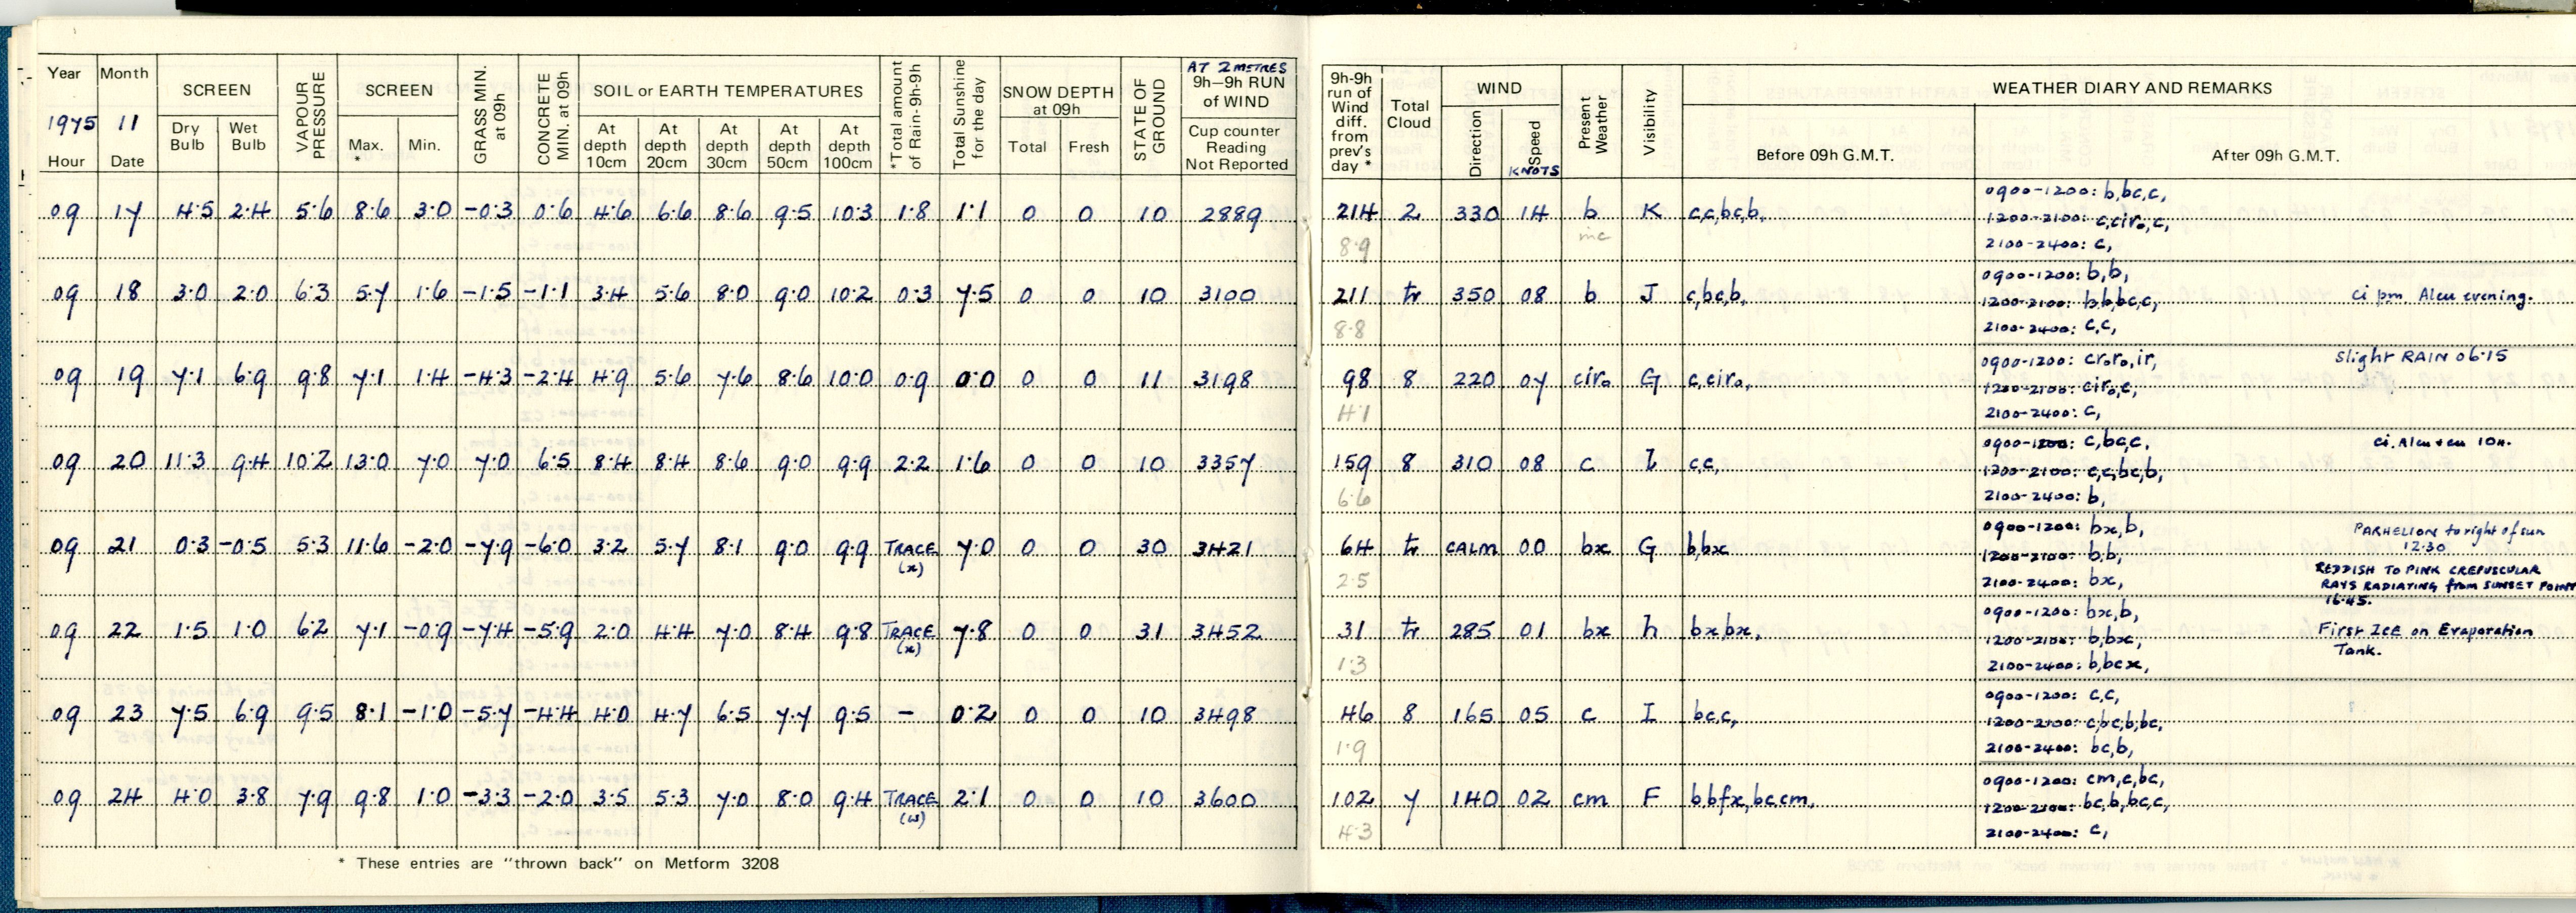 Year Month SCREEN VAPOUR PRESSURE SCREEN GRASS MIN. at 09h CONCRETE MIN. at 09h SOIL or EARTH TEMPERATURES *Total amount of Rain-9h-9h Total Sunshine for the day SNOW DEPTH at 09h STATE OF GROUND AT 2 METRES 9h–9h RUN of WIND
1975 11 Dry Bulb Wet Bulb Max. * Min. At depth 10cm At depth 20cm At depth 30cm At depth 50cm At depth 100cm Total Fresh Cup counter Reading Not Reported
Hour Date
09 17 4.5 2.4 5.6 8.6 3.0 -0.3 0.6 4.6 6.6 8.6 9.5 10.3 1.8 1.1 0 0 10 2889
09 18 3.0 2.0 6.3 5.7 1.6 -1.5 -1.1 3.4 5.6 8.0 9.0 10.2 0.3 7.5 0 0 10 3100
09 19 7.1 6.9 9.8 7.1 1.4 -4.3 -2.4 4.9 5.6 7.6 8.6 10.0 0.9 0.0 0 0 11 3198
09 20 11.3 9.4 10.2 13.0 7.0 7.0 6.5 8.4 8.4 8.6 9.0 9.9 2.2 1.6 0 0 10 3357
09 21 0.3 -0.5 5.3 11.6 -2.0 -7.9 -6.0 3.2 5.7 8.1 9.0 9.9 TRACE (x) 7.0 0 0 30 3421
09 22 1.5 1.0 6.2 7.1 -0.9 -7.4 -5.9 2.0 4.4 7.0 8.4 9.8 TRACE (x) 7.8 0 0 31 3452
09 23 7.5 6.9 9.5 8.1 -1.0 -5.7 -4.4 4.0 4.7 6.5 7.7 9.5 – 0.2 0 0 10 3498
09 24 4.0 3.8 7.9 9.8 1.0 -3.3 -2.0 3.5 5.3 7.0 8.0 9.4 TRACE (w) 2.1 0 0 10 3600
* These entries are "thrown back" on Metform 3208
9h-9h run of Wind diff. from prev's day * Total Cloud WIND Direction Speed KNOTS Present Weather Visibility WEATHER DIARY AND REMARKS
Before 09h G.M.T. After 09h G.M.T.
214 2 330 14 b K c,c,bc,b, 0900-1200: b,bc,c,
1200-2100: c,ciro,c,
8.9 2100-2400: c,
211 tr 350 08 b J c,bc,b, 0900-1200: b,b,
1200-2100: b,b,bc,c, ci pm. Alcu evening.
8.8 2100-2400: c,c,
98 8 220 07 ciro G c,ciro, 0900-1200: croro,ir, slight RAIN 06.15
1200-2100: ciro,c,
4.1 2100-2400: c,
159 8 310 08 c I c,c, 0900-1200: c,bc,c, ci. Alcu
1200-2100: c,c,bc,b,
6.6 2100-2400: b,
64 tr CALM 00 bx G b,bx 0900-1200: bx,b, PARHELION to right of sun 12.30
1200-2100: b,b,
2.5 2100-2400: bx, REDDISH TO PINK CREPUSCULAR RAYS RADIATING from SUNSET POINT 16.45.
31 tr 285 01 bx h bx,bx, 0900-1200: bx,b,
1200-2100: b,bx, First ICE on Evaporation Tank.
1.3 2100-2400: b,bcx,
46 8 165 05 c I bc,c, 0900-1200: c,c,
1200-2100: c,bc,b,bc,
1.9 2100-2400: bc,b,
102 7 140 02 cm F b,bfx,bc,cm, 0900-1200: cm,c,bc,
1200-2100: bc,b,bc,c,
4.3 2100-2400: c,